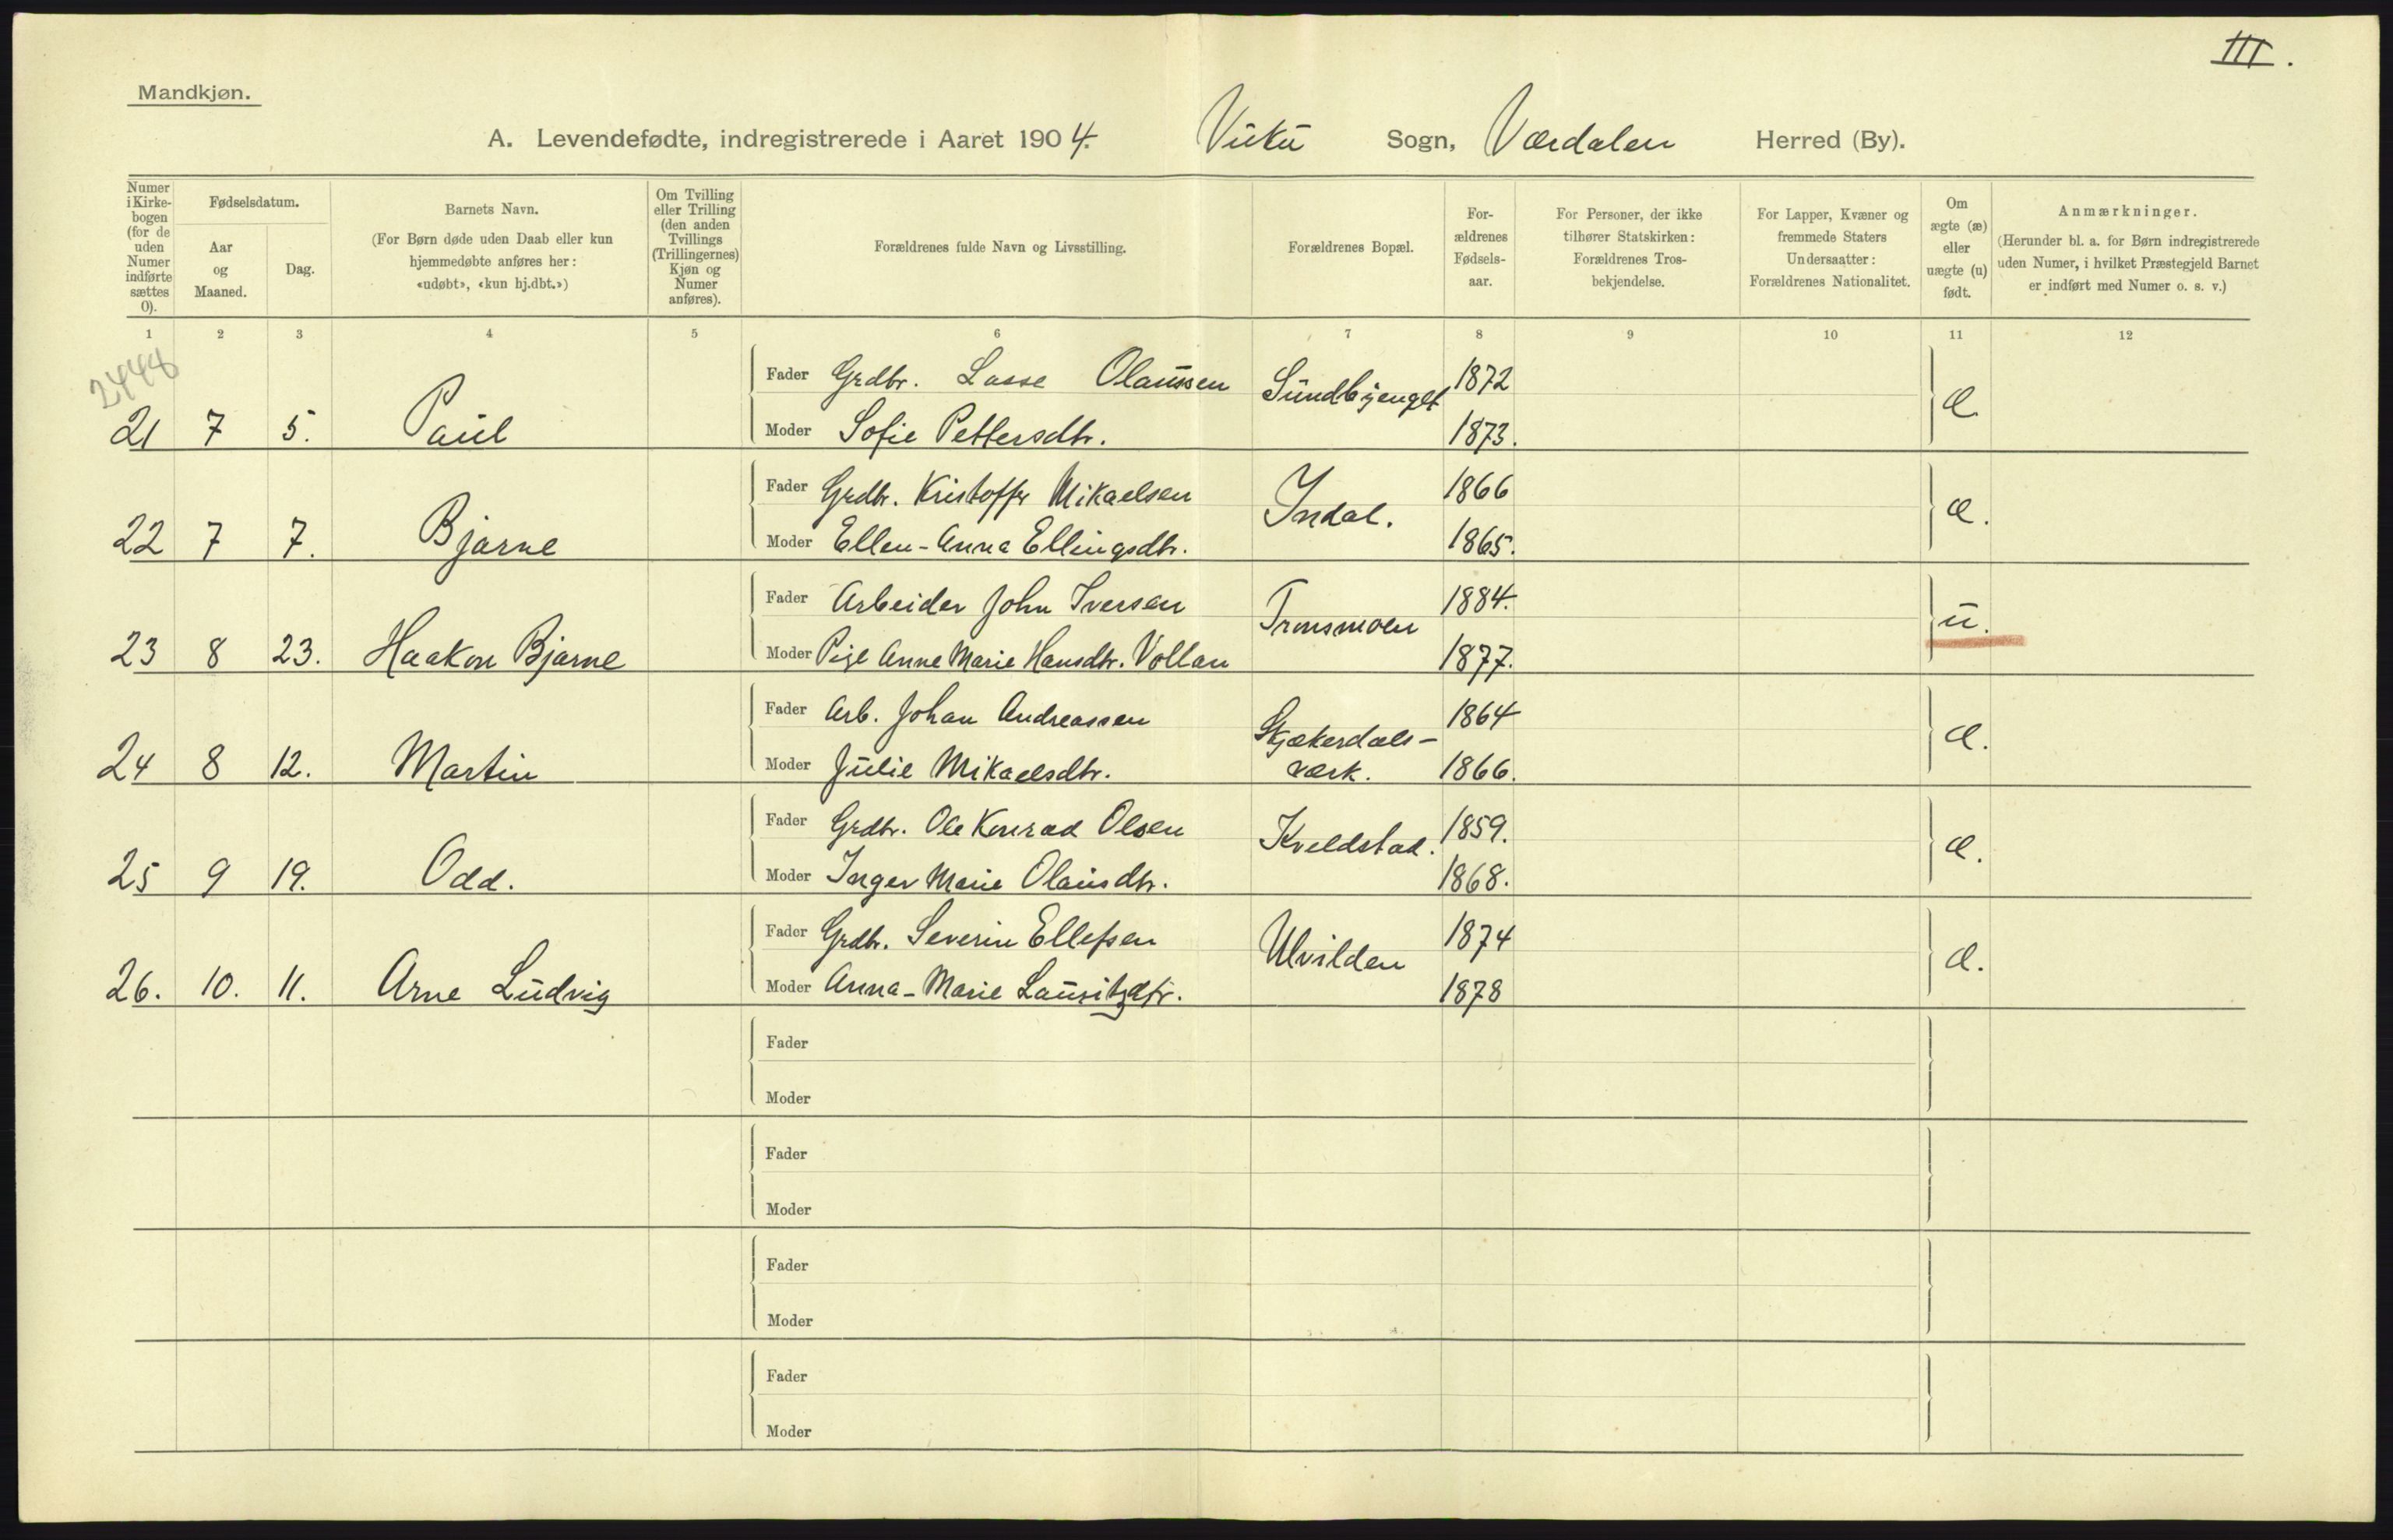 III.
Mandkjøn.
A. Levendefødte, indregistrerede i Aaret 1904. Vuku Sogn, Værdalen Herred (By).
Numer i Kirkebogen (for de uden Numer indførte sættes 0).
Fødselsdatum.
Aar og Maaned.
Dag.
Barnets Navn.
(For Børn døde uden Daab eller kun hjemmedøbte anføres her: «udøbt», «kun hj.dbt.»)
Om Tvilling eller Trilling (den anden Tvillings (Trillingernes) Kjøn og Numer anføres).
Forældrenes fulde Navn og Livsstilling.
Forældrenes Bopæl.
Forældrenes Fødselsaar.
For Personer, der ikke tilhører Statskirken: Forældrenes Trosbekjendelse.
For Lapper, Kvæner og fremmede Staters Undersaatter: Forældrenes Nationalitet.
Om ægte (æ) eller uægte (u) født.
Anmærkninger.
(Herunder bl. a. for Børn indregistrerede uden Numer, i hvilket Præstegjeld Barnet er indført med Numer o. s. v.)
1 2 3 4 5 6 7 8 9 10 11 12
2448
Fader Grdbr. Lasse Olaussen 1872
21 7 5. Paul Moder Sofie Pettersdtr. 1873. æ
Fader Grdbr. Kristoffr Mikaelsen Indal. 1866
22 7 7. Bjarne Moder Ellen-Anna Ellingsdtr. 1865. æ.
Fader Arbeider John Iversen Tronsmoen 1884.
23 8 23. Haakon Bjarne Moder Pige Anne Marie Hansdtr. Vollan 1877. u.
Fader Arb. Johan Andreassen Skjækerdals- 1864
24 8 12. Martin Moder Julie Mikaelsdtr. værk. 1866. æ.
Fader Grdbr. Ole Konrad Olsen Kveldstad. 1859.
25 9 19. Odd. Moder Inger Marie Olausdtr. 1868. æ.
Fader Grdbr. Severin Ellefsen Ulvilden 1874
26. 10. 11. Arne Ludvig Moder Anna-Marie Lauritzdtr. 1878 æ.
Fader
Moder
Fader
Moder
Fader
Moder
Fader
Moder